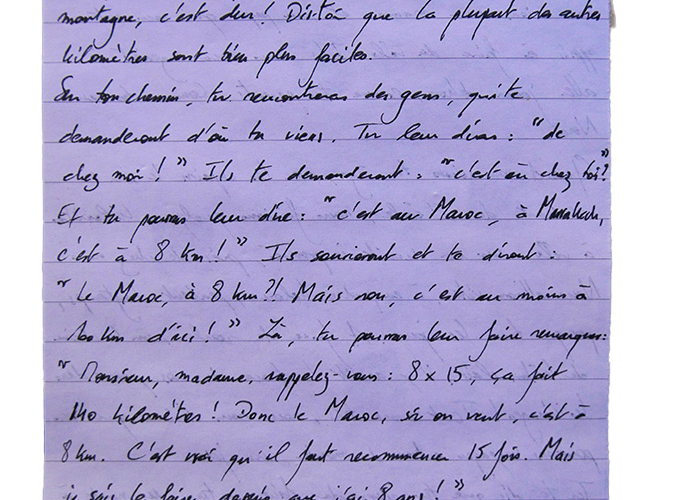 montagne, c'est dur ! Dis-toi que la plupart des autres
kilomètres sont bien plus faciles.
Sur ton chemin, tu rencontreras des gens, qui te
demanderont d'où tu viens. Tu leur diras : "de
chez moi ! " Ils te demanderont : "c'est où chez toi ?"
Et tu pourras leur dire : "c'est au Maroc, à Marrakech,
c'est à 8 km ! " Ils souriront et te diront :
" Le Maroc, à 8 km ?! Mais non, c'est au moins à
100 km d'ici ! " Là, tu pourras leur faire remarquer :
" Monsieur, madame, rappelez-vous : 8 x 15, ça fait
140 kilomètres ! Donc le Maroc, si on veut, c'est à
8 km. C'est vrai qu'il faut recommencer 15 fois. Mais
je sais le faire depuis que j'ai 8 ans ! "